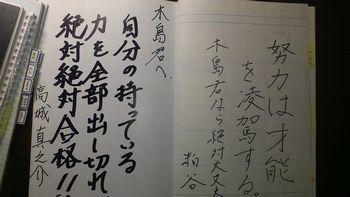 努力は才能
を凌駕する。
木島君なら絶対大丈夫
粕谷
木島君へ、
自分の持っている
力を全部出し切れ
絶対絶対合格!!
高城 真之介